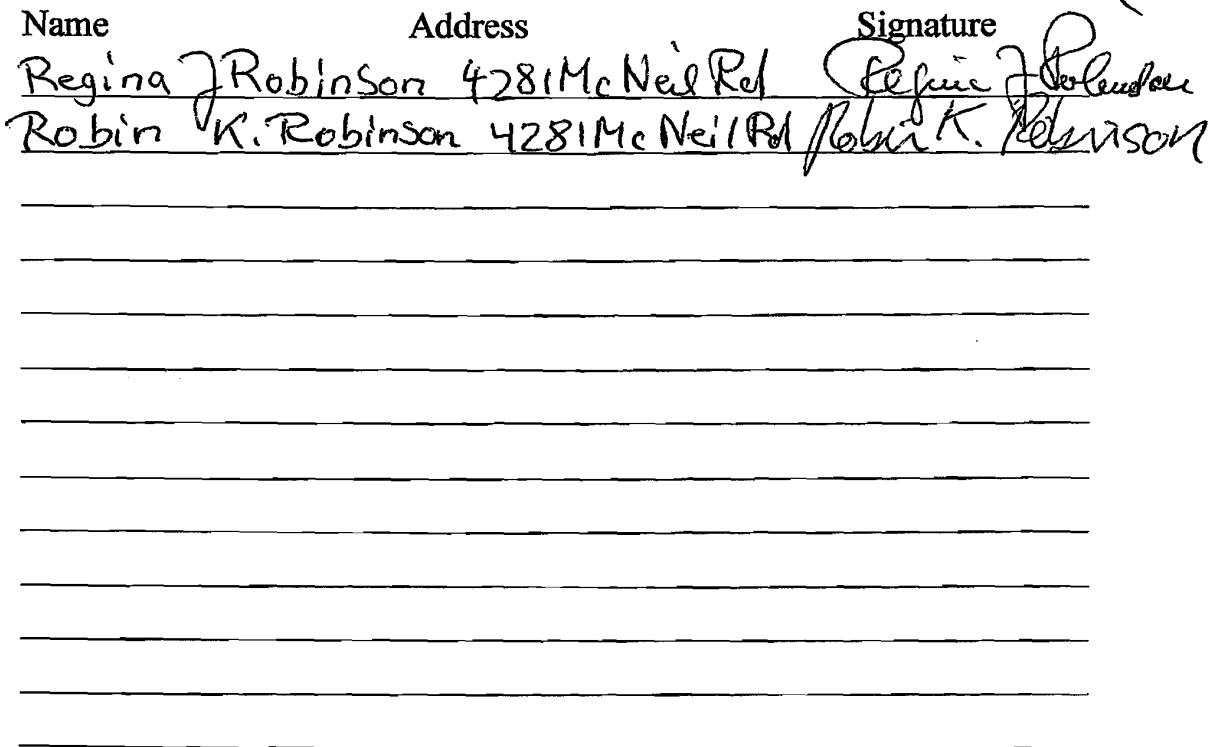 Name Address Signature
Regina J Robinson 4281 McNeil Rd Regina J Robinson
Robin K. Robinson 4281 McNeil Rd Robin K. Robinson